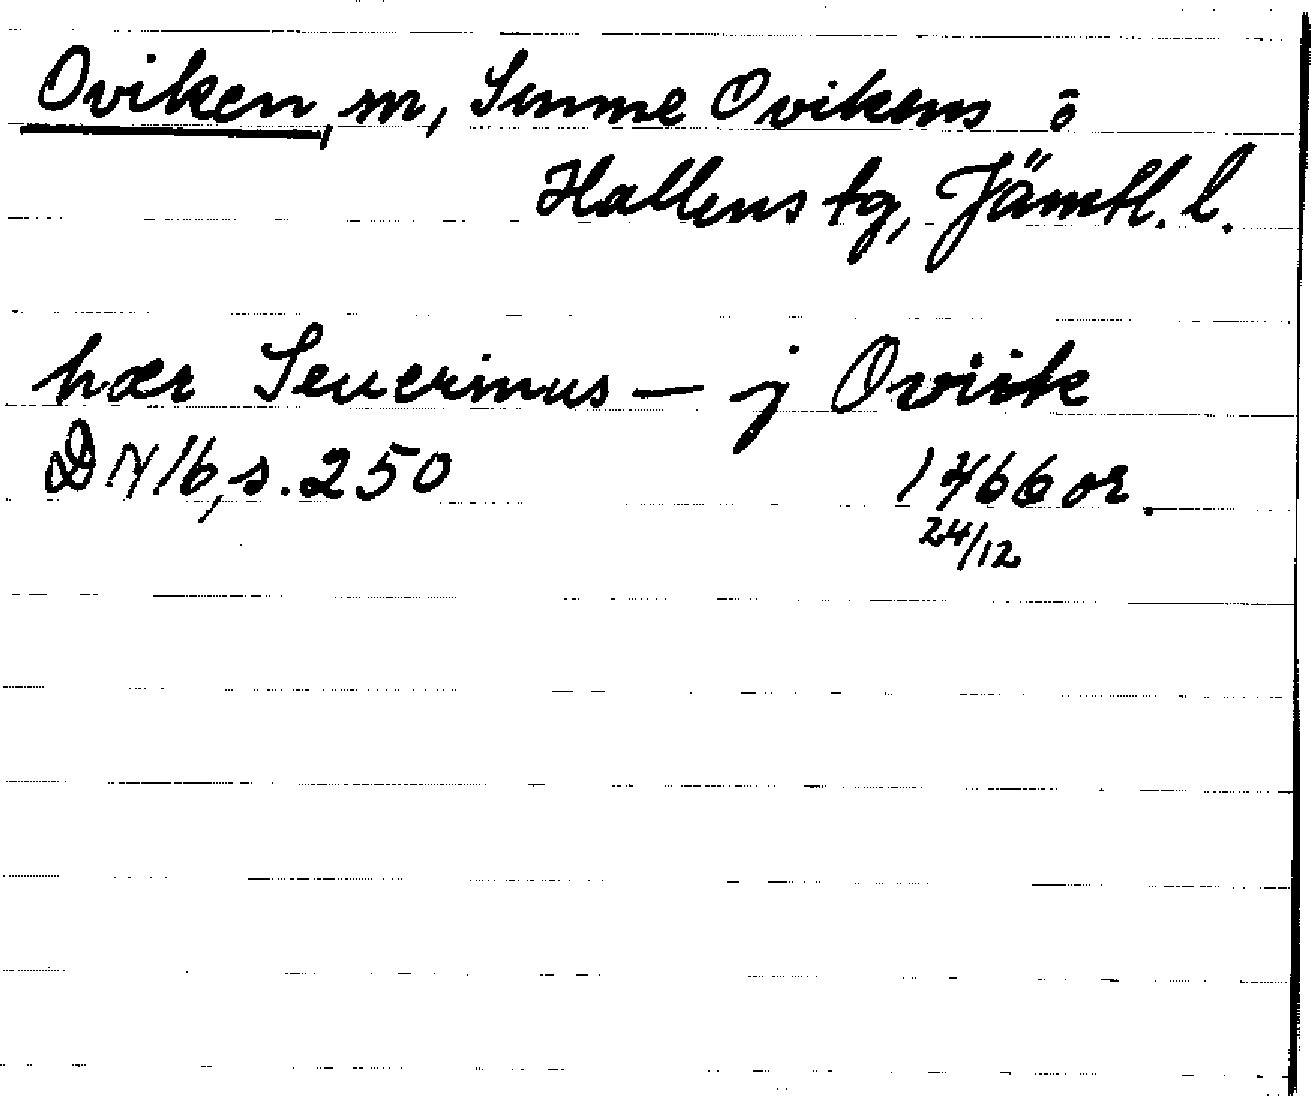 Oviken, sn, Sunne Ovikens o
Hallens tg, Jämtl. l.
hær Seuerinus — j Oviik
DN 16, s. 250 1466 or.
24/12